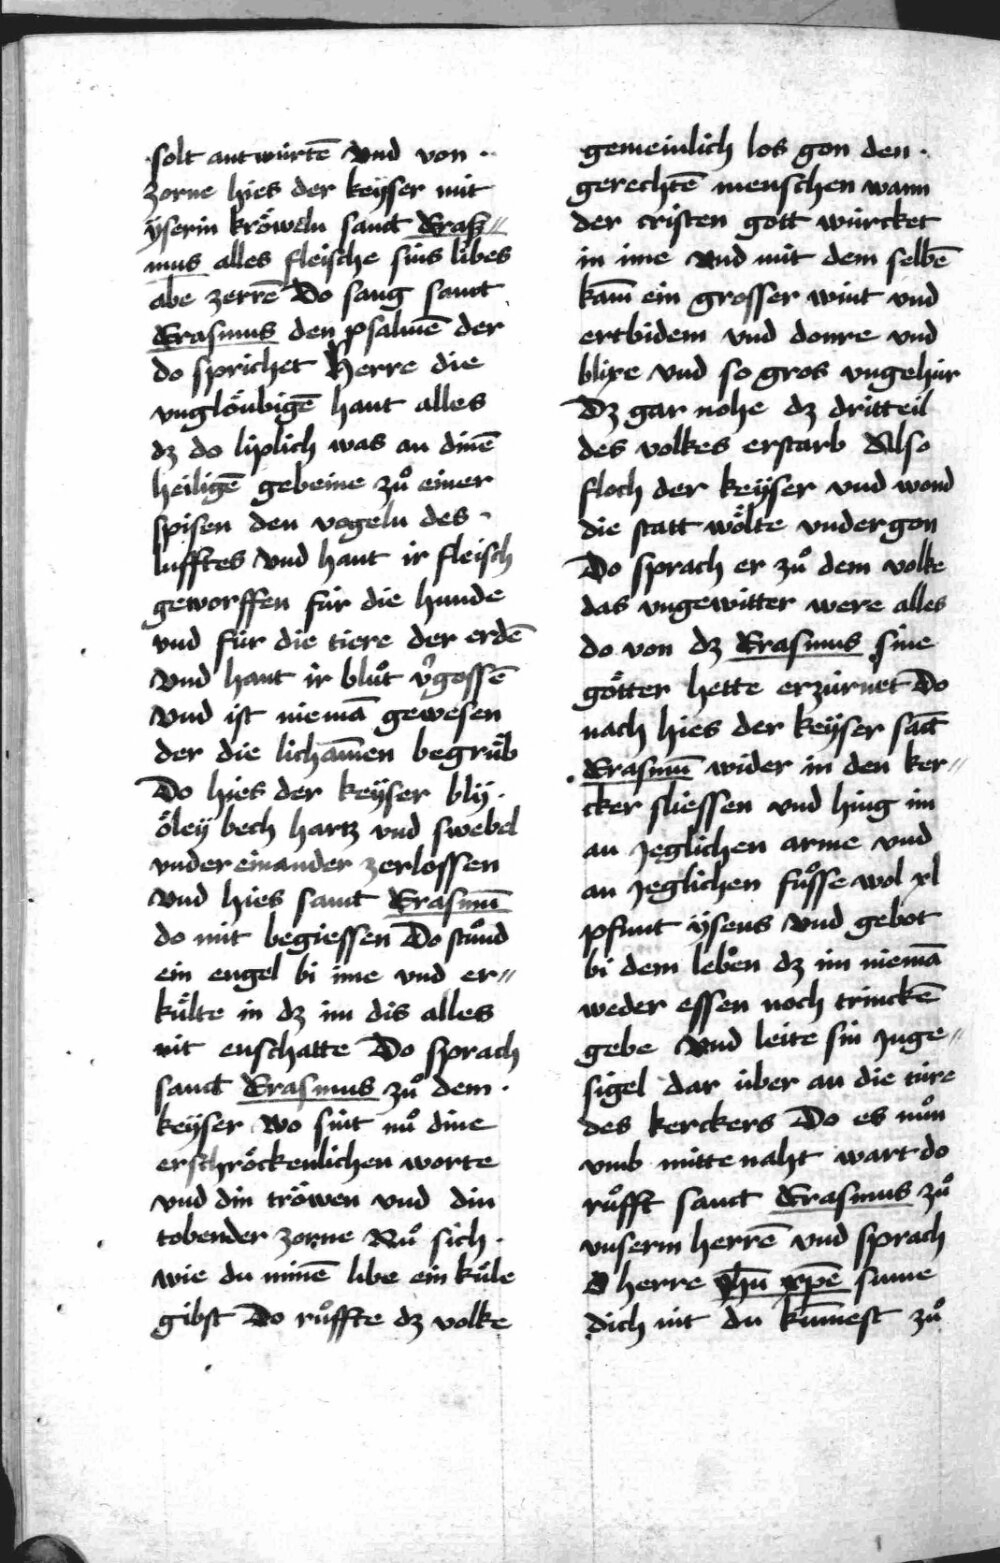 solt antwürtē vnd von
zorne hies der keyser mit
yserin kröweln sanct Erasz⸗
mus alles fleische sins libes
abe zerrē Do sang sanct
Erasmus den psalmē der
do sprichet Herre die
vnglöubigē hant alles
dz do liplich was an dinē
heiligē gebeine zů einer
spisen den vogeln des
lufftes vnd hant ir fleisch
geworffen für die hunde
vnd für die tiere der erdē
vnd hant ir blůt v̉gossē
vnd ist niemā gewesen
der die lichāmen begrůb
Do hies der keyser blij
öley bech hartz vnd swebel
vnder einander zerlossen
vnd hies sanct Erasmū
do mit begiessen Do stůnd
ein engel bi ime vnd er⸗
kůlte in dz im dis alles
nit enschatte Do sprach
sanct Erasmus zů dem
keyser wo sint nů dine
erschröckenlichen worte
vnd din tröwen vnd din
tobender zorne Nů sich
wie du minē libe ein kůle
gibst Do růffte dz volke
gemeinlich los gon den
gerechtē menschen wann
der cristen gott würcket
in ime vnd mit dem selbē
kam̄ ein grosser wint vnd
ertbidem vnd donre vnd
blixe vnd so gros vngehür
Dz gar nohe dz dritteil
des volkes erstarb Also
floch der keyser vnd wond
die statt wölte vndergon
Do sprach er zů dem volke
das vngewitter were alles
do von dz Erasmus sine
götter hette erzürnet Do
nach hies der keyser sāct
Erasmū wider in den ker⸗
cker sliessen vnd hing im
an jeglichen arme vnd
an jeglichen fůsse wol xl
pfunt ysens vnd gebot
bi dem lebēn dz im niemā
weder essen noch trinckē
gebe vnd leite sin Inge⸗
sigel dar über an die türe
des kerckers Do es nůn
vmb mitte naht wart do
růfft sanct Erasmus zů
vnserm herrē vnd sprach
O herre jhū xpē sume
dich nit du kūmest zů